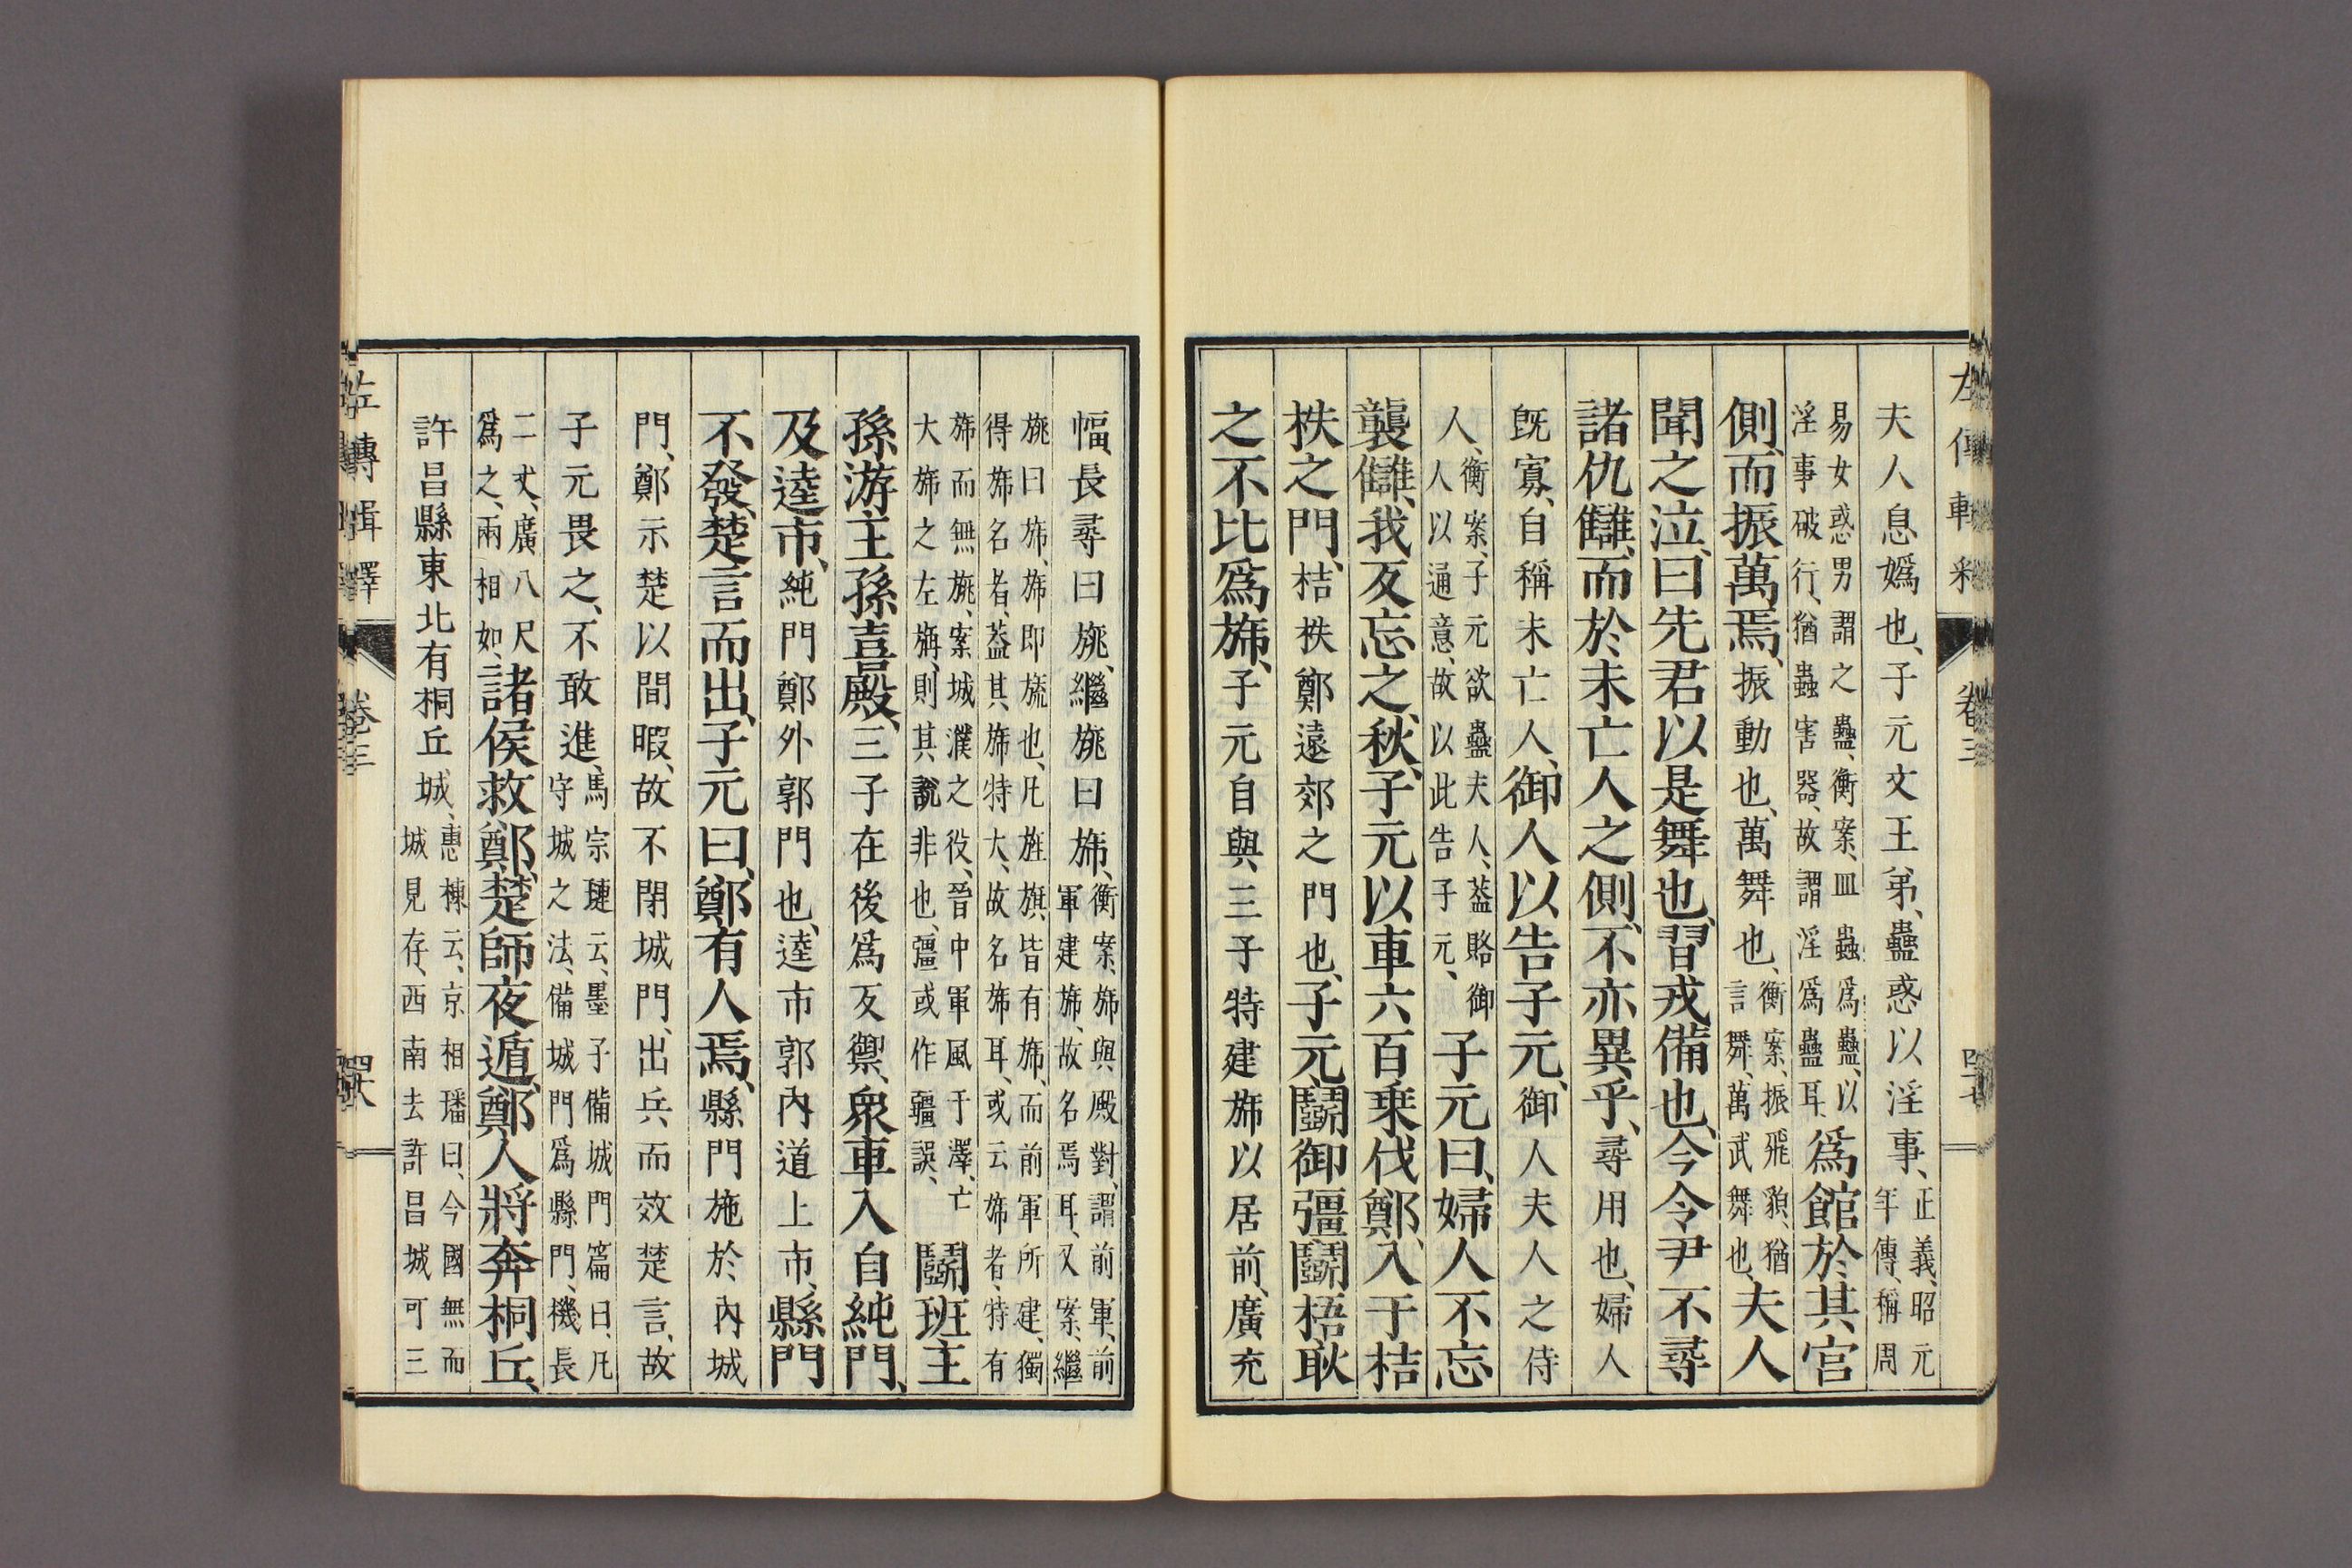 左傳輯釋 卷三
夫人息嬀也、子元文王弟、蠱惑以淫事、
正義、昭元
年傳、稱周
易女惑男謂之蠱、衡案、皿蟲爲蠱、以
淫事破行、猶蟲害器、故謂淫爲蠱耳、
爲館於其宮
側、而振萬焉、振動也、萬舞也、
衡案、振飛貌、猶
言舞、萬武舞也、
夫人
聞之泣、曰先君以是舞也、習戎備也、今令尹不尋
諸仇讎、而於未亡人之側、不亦異乎、尋用也、婦人
既寡、自稱未亡人、御人以告子元、御人夫人之侍
人、
衡案、子元欲蠱夫人、蓋賂御
人以通意、故以此告子元、
子元曰、婦人不忘
襲讎、我反忘之、秋、子元以車六百乘伐鄭、入于桔
柣之門、桔柣鄭遠郊之門也、子元、鬭御彊、鬭梧、耿
之不比爲旆、子元自與、三子特建旆以居前、廣充
幅、長尋曰旐、繼旐曰旆、
衡案、旆與殿對、謂前軍、前
軍建旆、故名焉耳、又案、繼
旐曰旆、旆即旒也、凡旌旗、皆有旆、而前軍所建、獨
得旆名者、蓋其旆特大、故名旆耳、或云旆者、特有
旆而無旐、案城濮之役、晉中軍風于澤、亡
大旆之左旃、則其說非也、彊或作疆誤、
鬭班、王
孫游、王孫喜殿、三子在後爲反禦、衆車入自純門、
及逵市、純門鄭外郭門也、逵市郭內道上市、縣門
不發、楚言而出、子元曰、鄭有人焉、縣門施於內城
門、鄭示楚以間暇、故不閉城門、出兵而效楚言、故
子元畏之、不敢進、
馬宗璉云、墨子備城門篇曰、凡
守城之法、備城門爲縣門、機長
二丈、廣八尺
爲之、兩相如、
諸侯救鄭、楚師夜遁、鄭人將奔桐丘、
許昌縣東北有桐丘城、
惠棟云、京相璠曰、今國無而
城見存、西南去許昌城可三
卷三